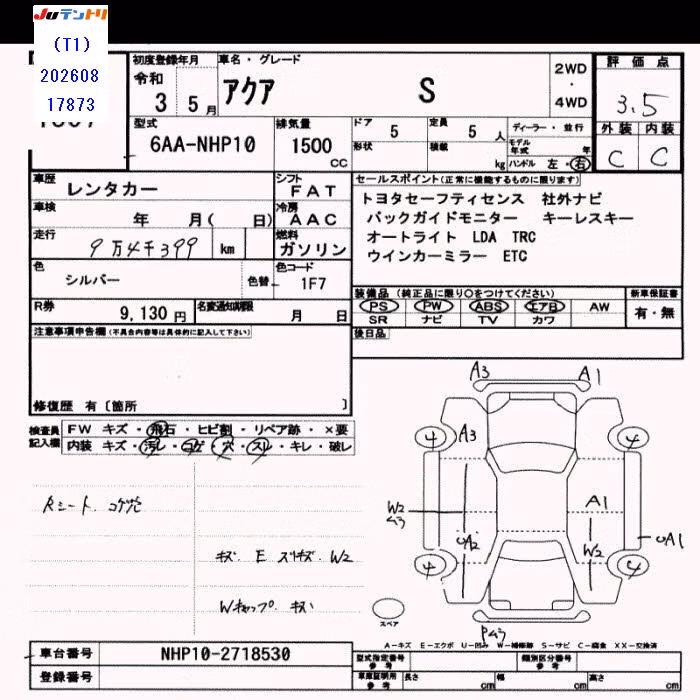 JUテントリ
(T1)
202608
17873
初度登録年月 車名・グレード 2WD・4WD 評価点
令和 3年 5月 アクア S 3.5
外装 内装
C C
型式 排気量 ドア 5 定員 5人 ディーラー・並行
6AA-NHP10 1500cc 形状 積載 kg モデル年式 年
ハンドル 左・右
車歴 レンタカー シフト FAT セールスポイント(正常に機能するものに限ります)
車検 年 月( 日) 冷房 AAC トヨタセーフティセンス 社外ナビ
バックガイドモニター キーレスキー
走行 9万4千399 km 燃料 ガソリン オートライト LDA TRC
ウインカーミラー ETC
色 シルバー 色替 色コード 1F7
装備品(純正品に限り○をつけてください) 新車保証書
R券 9,130円 名変通知期限 月 日 PS PW ABS エアB AW 有・無
SR ナビ TV カワ
注意事項申告欄(不具合内容等は具体的に記入して下さい) 後日品
修復歴 有〔箇所 〕
検査員記入欄 FW キズ・飛石・ヒビ割・リペア跡・×要
内装 キズ・汚レ・コゲ・穴・スレ・キレ・破レ
A3 A1
4 A3 4
W2 A1
A2 W2 A1
4 4
Rシート コゲ穴
キズ E スリキズ W2
Wキャップ キズ
スペア
A－キズ E－エクボ U－凹み W－補修跡 S－サビ C－腐食 XX－交換済
車台番号 NHP10-2718530 型式指定番号 参考 類別区分番号 参考
登録番号 車庫証明用 参考 長さ cm 幅 cm 高さ cm